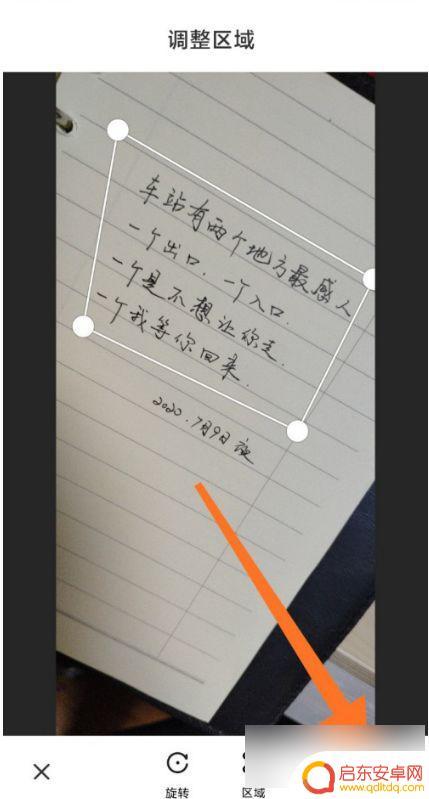 调整区域
车站有两个地方最感人
一个出口.一个入口.
一个是不想让你走.
一个我等你回来.
2020.7月9日夜
旋转
区域
启东安卓网
www.qdltdq.com